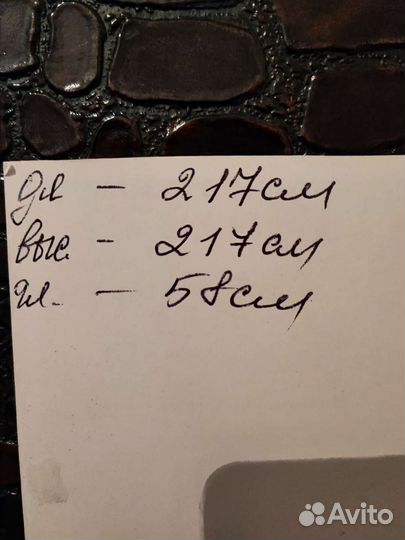 дл – 217см
выс. - 217см
гл. – 58см
Avito